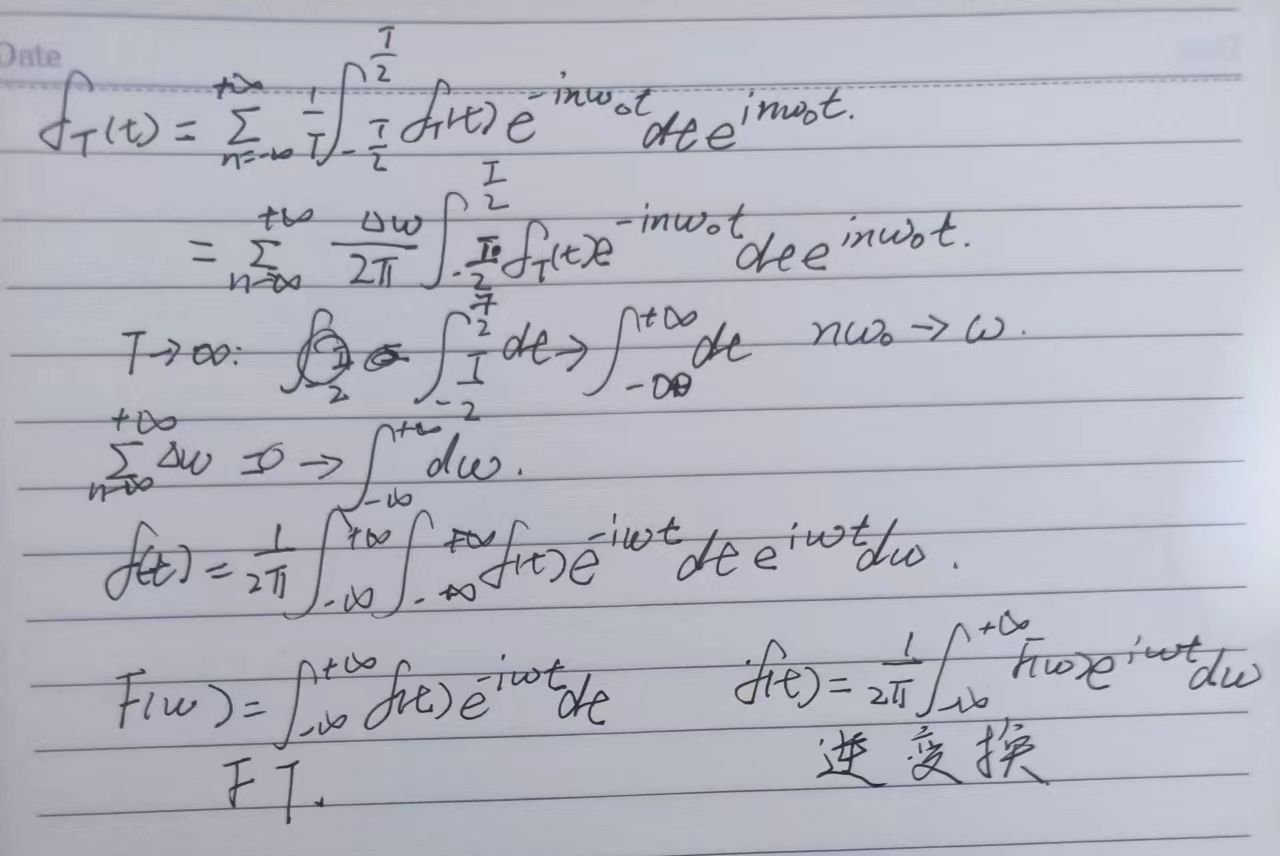 Date
f_T(t) = \sum_{n=-\infty}^{+\infty} \frac{1}{T} \int_{-\frac{T}{2}}^{\frac{T}{2}} f_T(t) e^{-inω₀t} dt e^{inω₀t}.
= \sum_{n=-\infty}^{+\infty} \frac{Δω}{2π} \int_{-\frac{T}{2}}^{\frac{T}{2}} f_T(t) e^{-inω₀t} dt e^{inω₀t}.
T → ∞: \int_{-\frac{T}{2}}^{\frac{T}{2}} dt → \int_{-\infty}^{+\infty} dt nω₀ → ω.
\sum_{n=-\infty}^{+\infty} Δω → \int_{-\infty}^{+\infty} dω.
f(t) = \frac{1}{2π} \int_{-\infty}^{+\infty} \int_{-\infty}^{+\infty} f(t) e^{-iωt} dt e^{iωt} dω.
F(ω) = \int_{-\infty}^{+\infty} f(t) e^{-iωt} dt f(t) = \frac{1}{2π} \int_{-\infty}^{+\infty} F(ω) e^{iωt} dω
FT. 逆变换